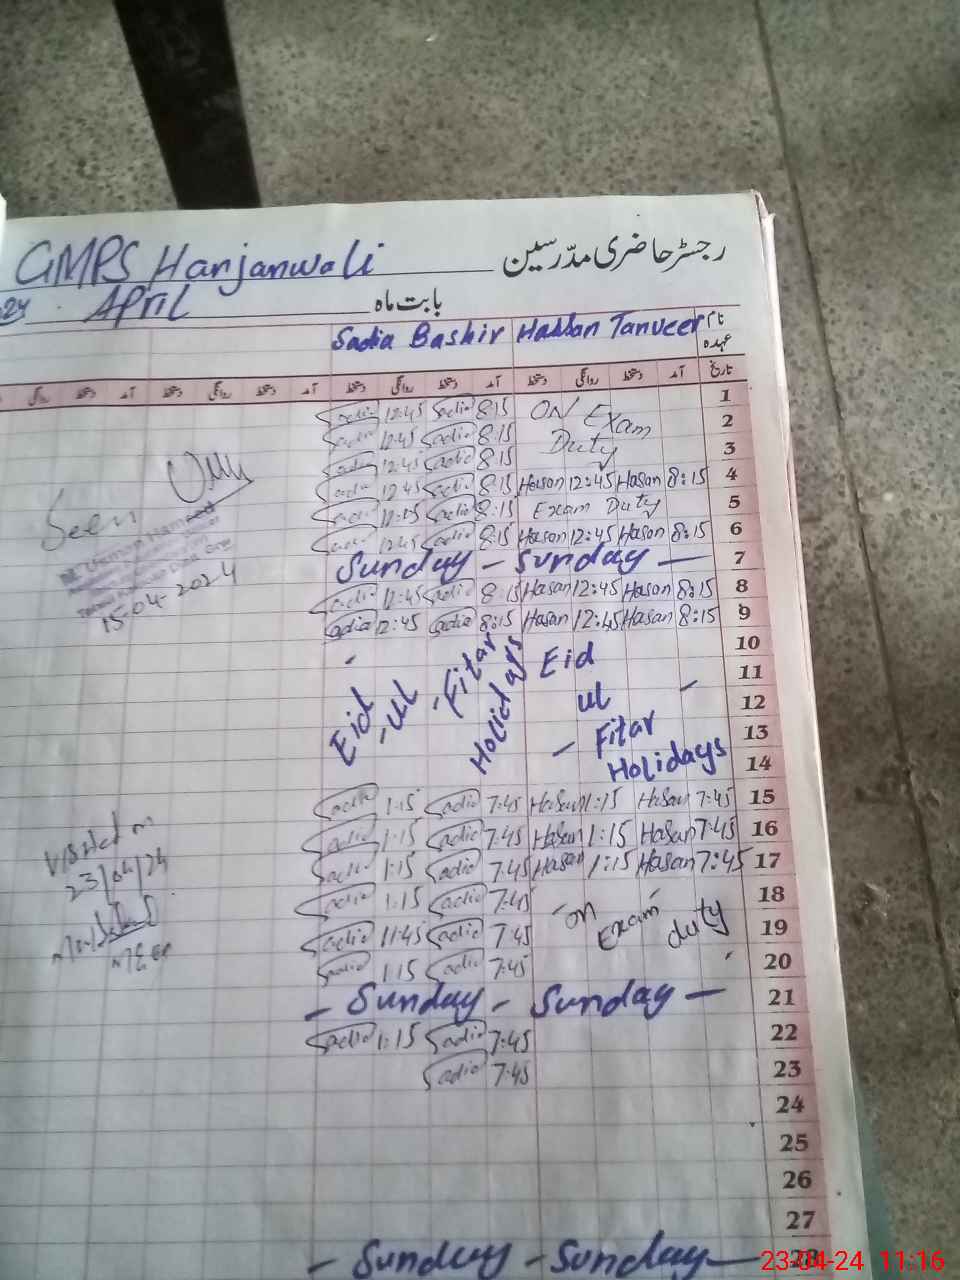 GMPS Harjanwali رجسٹر حاضری مدّرسین
24 April بابت ماہ
Sadia Bashir Hassan Tanveer نام
عہدہ
روانگی دستخط آمد دستخط روانگی دستخط آمد دستخط روانگی دستخط آمد دستخط روانگی دستخط آمد تاریخ
Sadia 12:45 Sadia 8:15 ON Exam 1
Sadia 12:45 Sadia 8:15 Duty 2
Sadia 12:45 Sadia 8:15 3
Sadia 12:45 Sadia 8:15 Hasan 12:45 Hasan 8:15 4
Sadia 12:45 Sadia 8:15 Exam Duty 5
Sadia 12:45 Sadia 8:15 Hasan 12:45 Hasan 8:15 6
Sunday - Sunday - 7
Sadia 12:45 Sadia 8:15 Hasan 12:45 Hasan 8:15 8
Sadia 12:45 Sadia 8:15 Hasan 12:45 Hasan 8:15 9
Seen
15-04-2024
Eid - ul - Fitar Holidays
Eid
ul
- Fitar
Holidays
10
11
12
13
14
Sadia 1:15 Sadia 7:45 Hasan 1:15 Hasan 7:45 15
Sadia 1:15 Sadia 7:45 Hasan 1:15 Hasan 7:45 16
Sadia 1:15 Sadia 7:45 Hasan 1:15 Hasan 7:45 17
Sadia 1:15 Sadia 7:45 18
Sadia 11:45 Sadia 7:45 on Exam duty 19
Sadia 1:15 Sadia 7:45 20
Visited on
23/04/24
- Sunday - Sunday - 21
Sadia 1:15 Sadia 7:45 22
Sadia 7:45 23
24
25
26
27
- Sunday - Sunday - 28
23-04-24 11:16